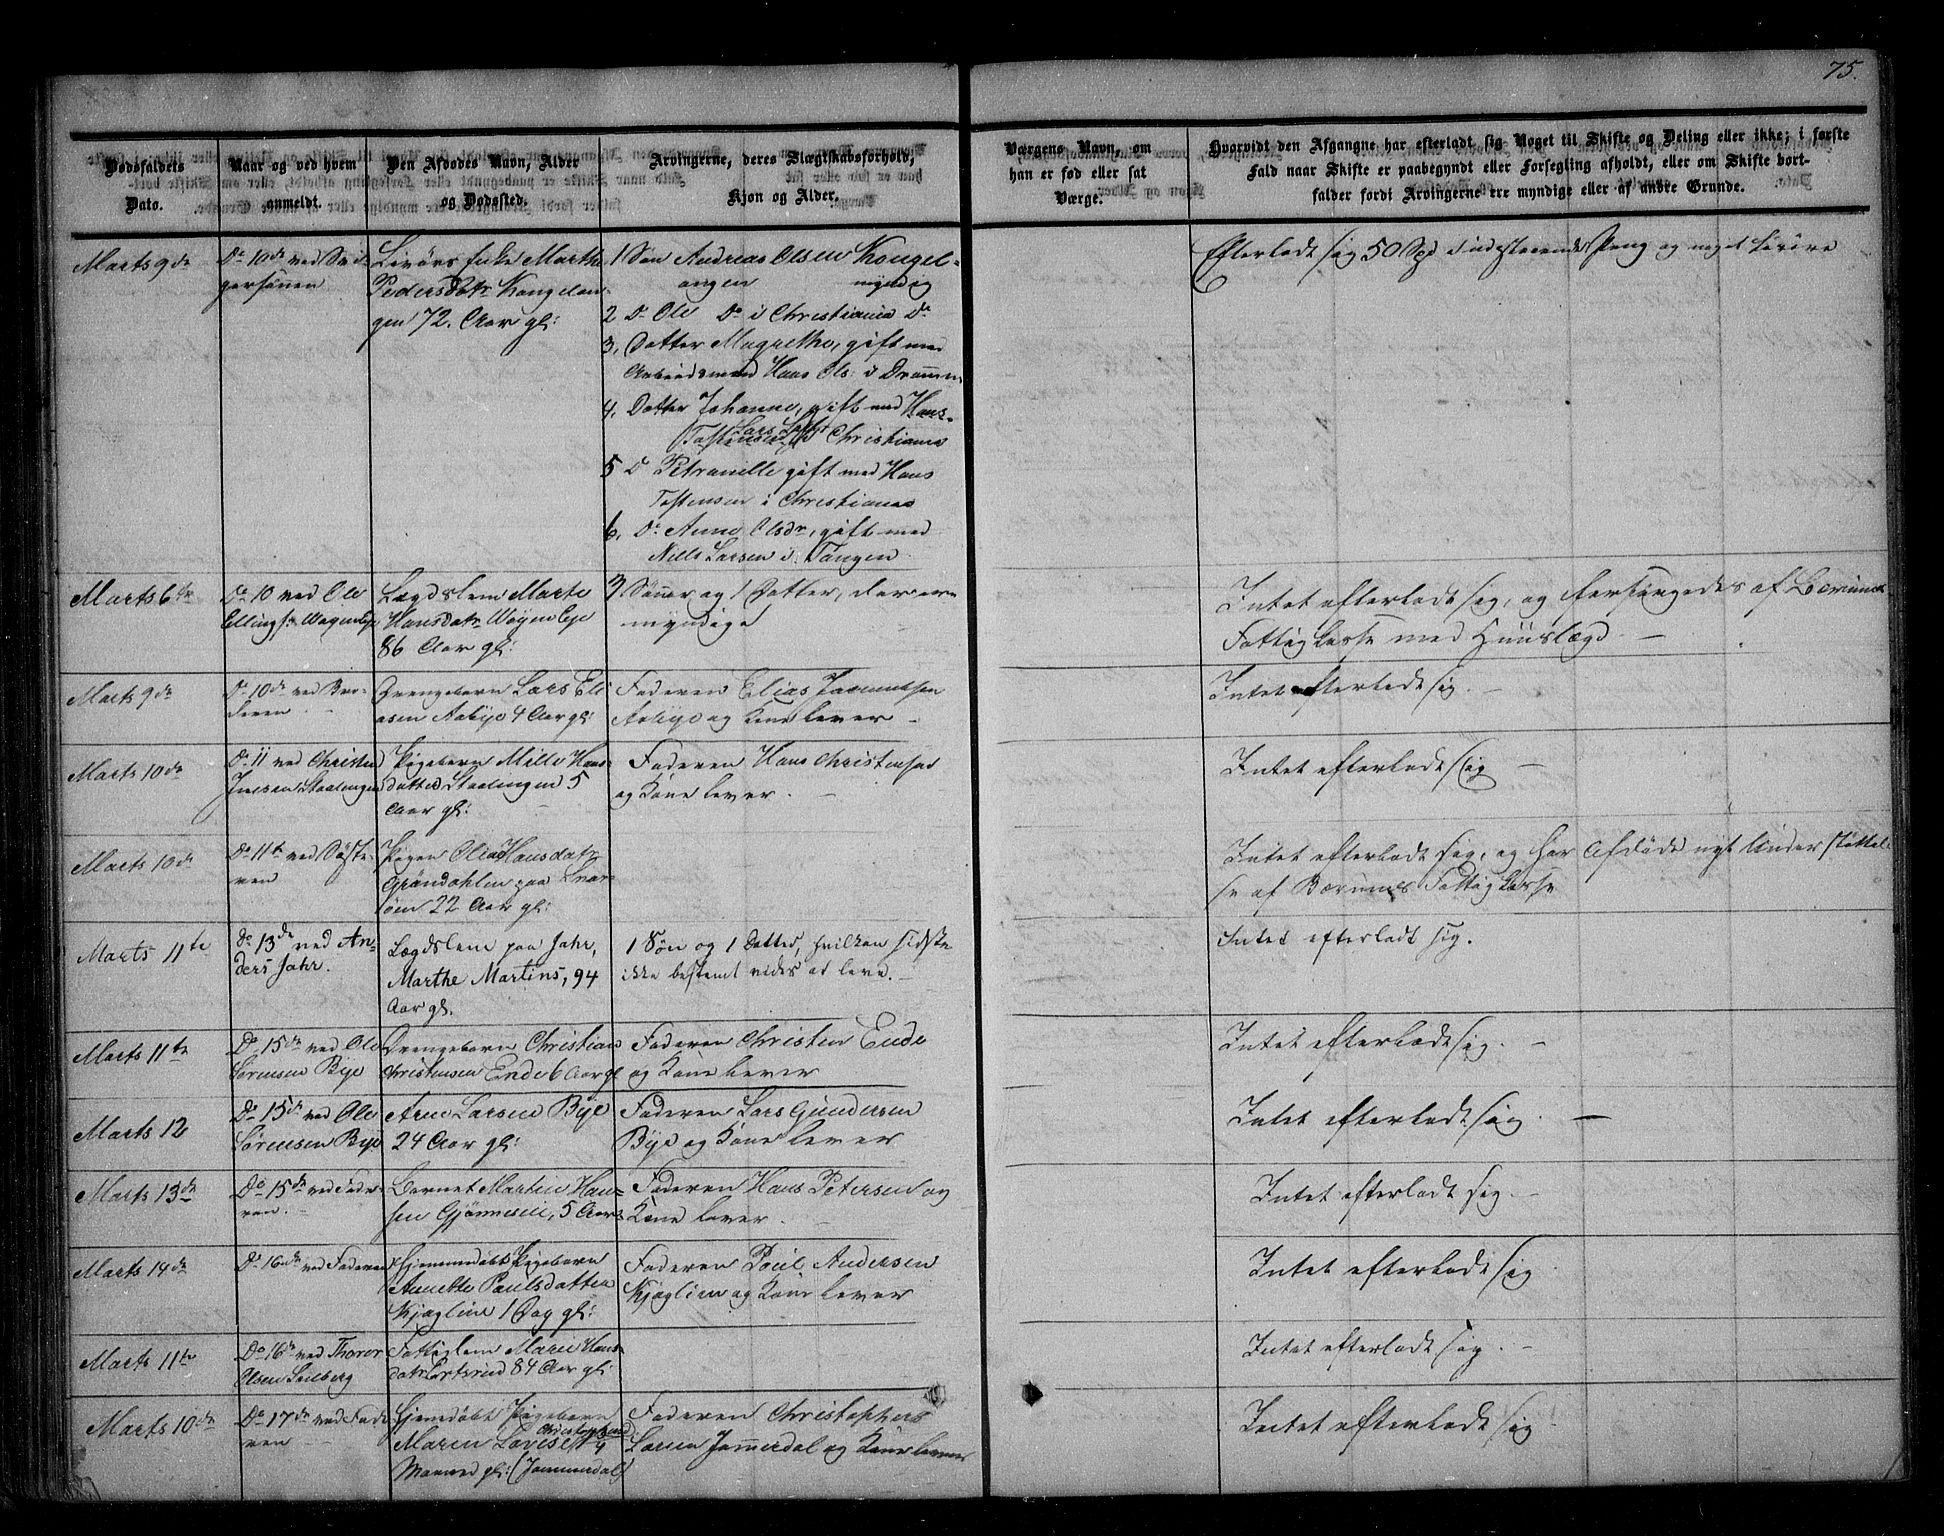 75.
Dødsfaldets Dato.
Naar og ved hvem anmeldt.
Den Afdødes Navn, Alder og Dødssted.
Arvingerne, deres Slægtskabsforhold, Kjøn og Alder.
Værgens Navn, om han er fød eller sat Værge.
Hvorvidt den Afgangne har efterladt sig Noget til Skifte og Deling eller ikke; i første
Fald naar Skifte er paabegyndt eller Forsegling afholdt, eller om Skifte bort-
falder fordi Arvingerne ere myndige eller af andre Grunde.
Marts 9de
Do 10de ved Svi-
gersønnen
Enke Marthe
Pedersdatr Kongelun-
gen 72. Aar gl:
1 Søn Andreas Olsen Kongel-
ungen myndig
2 Do Ole Do i Christiania Do
3, Datter Magrethe, gift med
Arbeidsmand Hans Ols: i Drammen
4, Datter Johanne, gift med Hans
Tostensen Lars i Christiania
5 Do Petronille gift med Hans
Tostensen i Christiania
6, Do Anne Olsdr, gift med
Nills Larsen i Tangen
Efterlod sig 50 Spd i indestaaende Penge og noget Løsøre
Marts 6te
Do 10 ved Ole
Ellingsen Wøyen Eje
Lægdslem Marte
Hansdatr Wøyen Eje
86 Aar gl:
3 Sønner og 1 Datter, der ere
myndige
Intet efterladt sig, og forsørgedes af Bærums
Fattigkasse med Huuslægd –
Marts 9de
Do 10de ved Bro-
deren –
Drengebarn Lars Eli
asen Aabye 4 Aar gl:
Faderen Elias
Aabye og Kone lever –
Intet efterladt sig. –
Marts 10de
Do 11 ved Christen
Jensen Staalingen
Pigebarn Mille Hans
datter Staalingen 5
Aar gl:
Faderen Hans Christensen
og Kone lever. –
Intet efterladt sig –
Marts 10de
Do 11te ved Søste-
ren
Pigen Oliva Hansdatr
Grøndahlen paa Snar-
øen 22 Aar gl:
Intet efterladt sig, og har Afdøde nydt Understøttel-
se af Bærums Fattigkasse
Marts 11te
do 13de ved An-
ders Jahr.
Lægdslem paa Jahr,
Marthe Martins, 94
Aar gl.
1 Søn og 1 Datter, hvilken sidste
ikke bestemt vides at leve. –
Intet efterladt sig.
Marts 11te
Do 15de ved Ole
Sørensen Bye
Drengebarn Christian
Christensen Ende 6 Aar gl
Faderen Christen Ende
og Kone lever
Intet efterladt sig. –
Marts 12
Do 15de ved Ole
Sørensen Bye
Arne Larsen Bye
24 Aar gl:
Faderen Lars Gundersen
Bye og Kone lever
Intet efterladt sig. –
Marts 13de
Do 15de ved Fade-
ren. –
Barnet Martin Han-
sen Gjønnesen, 5 Aar
Faderen Hans Petersen og
Kone lever. –
Intet efterladt sig. –
Marts 14de
Do 16de ved Faderen
Hjemmedøbt Pigebarn
Annette Paulsdatter
Kjaglien 1 Dag gl:
Faderen Poul Andersen
Kjaglien og Kone lever
Intet efterladt sig
Marts 11te
Do 16de ved Thorer
Olsen
Fattiglem Maren Hans-
datr 84 Aar gl:
Intet efterladt sig. –
Marts 10de
Do 17de ved Fade
ren –
Hjemdøbt Pigebarn
Maren Lovise Christophersd 3/4
Maaned gl: (Jammerdal)
Faderen Christopher
Larsen Jammerdal og Kone lever
Intet efterladt sig